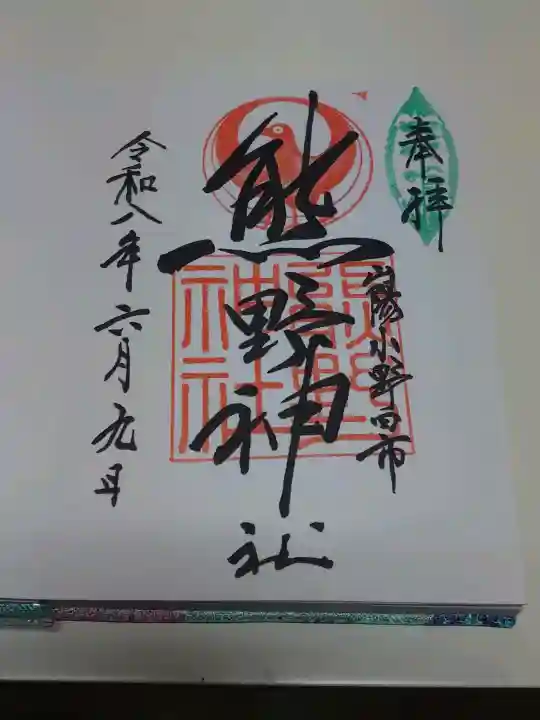 奉拝
山陽小野田市
熊野神社
令和八年六月九日
熊野
神社